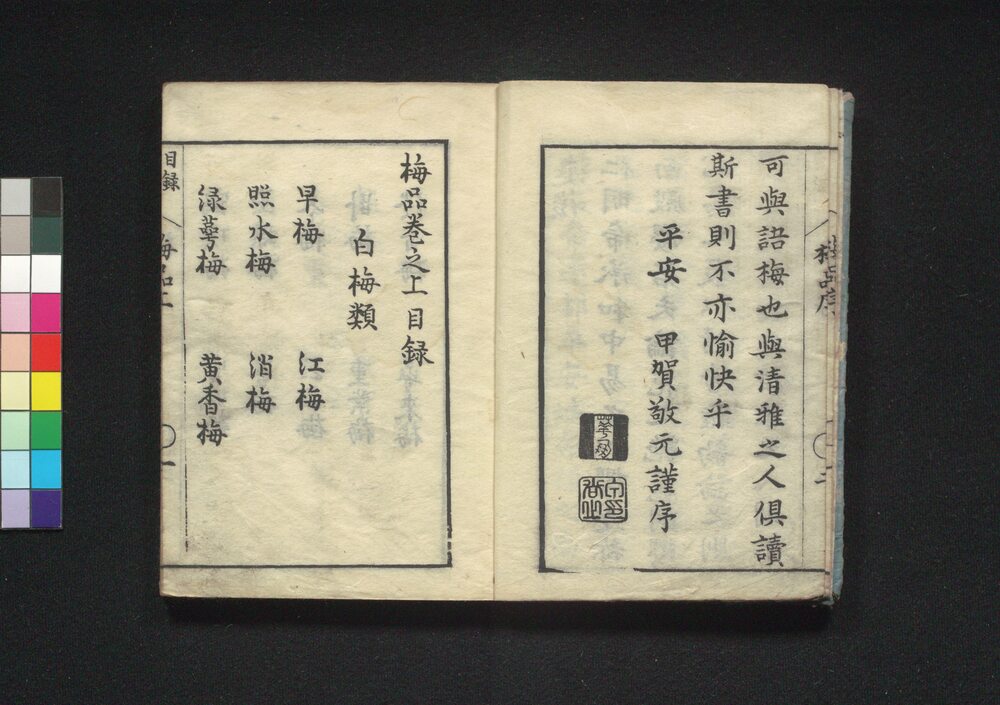 可與語梅也與清雅之人俱讀
斯書則不亦愉快乎
平安　甲賀敬元謹序
梅品序
二
梅品卷之上目録
白梅類
早梅　江梅
照水梅　消梅
緑萼梅　黄香梅
目録　梅品上　一